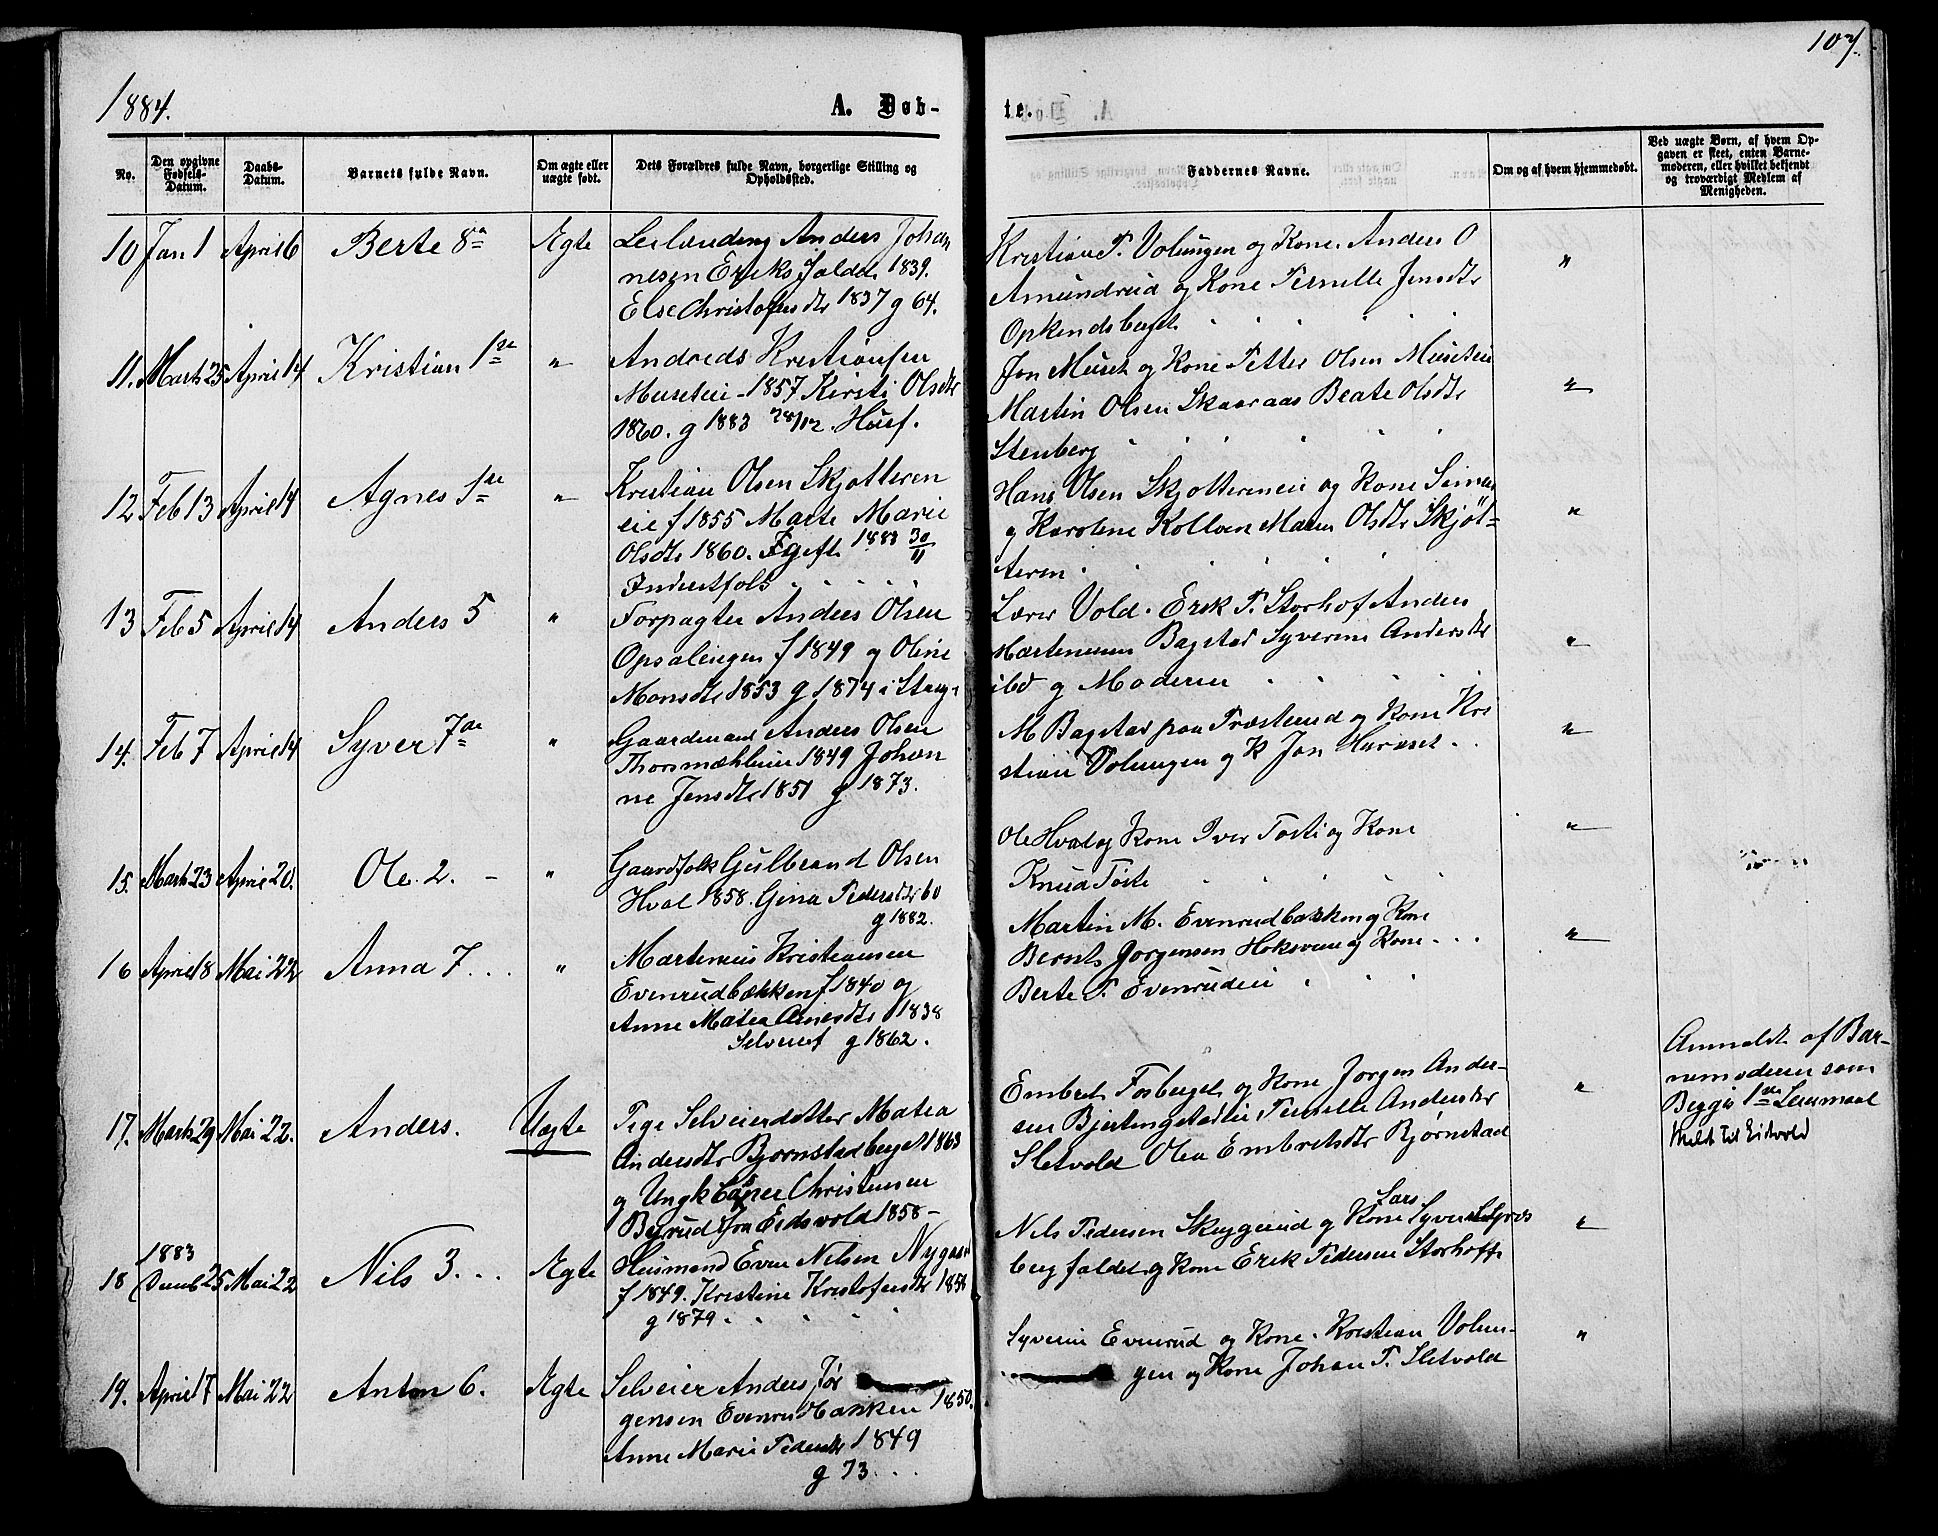 107.
1884.
A. Døb-
te.
No.
Den opgivne Fødsels-Datum.
Daabs-Datum.
Barnets fulde Navn.
Om ægte eller uægte født.
Dets Forældres fulde Navn, borgerlige Stilling og Opholdssted.
Faddernes Navne.
Om og af hvem hjemmedøbt.
Ved uægte Børn, af hvem Opgaven er skeet, enten Barnemoderen, eller hvilket bekjendt og troværdigt Medlem af Menigheden.
10 Jan 1 April 6 Berte 8de Ægte
Leilænding Anders Johan
nesen Eriksfaldet 1839.
Else Christofersdtr 1837 g 64.
Kristian P. Volungen og Kone. Anders O
Amundrud og Kone Pernille Jensdtr
Opkendsberget
"
11. Marts 25 April 14 Kristian 1ste "
Andreas Kristiansen
Museteie 1857 Kirsti Olsdtr
1860. g 1883 28/12. Husf.
Jon Muset og Kone Petter Olsen Muset
Martin Olsen Skaaraas Beate Olsdtr
Stenberg
"
12 Feb 13 April 14 Agnes 1ste "
Kristian Olsen Skjotteren
eie f 1855 Marte Marie
Olsdtr 1860. F gift 1883 30/11
Inderstfolk
Hans Olsen Skjottereneie og Kone
g Karolene Kollven Maren Olsdtr Skjøt-
teren
"
13 Feb 5 April 14 Anders 5 "
Forpagter Anders Olsen
Opsalengen f 1849 og Oline
Monsdtr 1853 g 1874 i Stang
Lærer Vold. Erik P. Storhof Anders
Martenusen Bagstad Syverine Andersdtr
ibd og Moderen
"
14. Feb 7 April 14 Syver 7de "
Gaardmand Anders Olsen
Thorsmæhleie 1849 Johan
ne Jensdtr 1851 g 1873.
M Bagstad paa Træsterud og Kone Kri
stian Volungen og K Jon Haraset
"
15. Marts 23 April 20. Ole 2. "
Gaardfolk Gulbrand Olsen
Hval 1858. Gina Pedersdtr 60
g 1882.
Ole Hval og Kone Iver Toste og Kone
Knud Toste
"
16 April 8 Mai 22 Anna 7 "
Martenius Kristiansen
Evenrudbækken f 1840 og
Anne Matea Arnesdtr 1838
Selveierf g 1862.
Martin M. Evenrudbækken og Kone
Bernt Jorgensen Hoksveen og Kone
Berte P. Evenrudeie
"
17. Marts 29 Mai 22. Anders. Uægte
Pige Selveierdatter Matea
Andersdtr Bjornstadberget 1863
og Ungk Casper Christensen
Byrud fra Eidsvold 1858 -
Embret Fosberget og Kone Jorgen Ander-
sen Bjertingstadeie Pernille Andersdtr
Sletvold Olea Embretsdtr Bjørnstad
"
Anmeldt af Bar-
nemoderen som
Begges 1ste Leiermaal
Meldt til Eidsvold
18 1883 Decmb 25 Mai 22 Nils 3. Ægte
Husmand Even Nilsen Nygaard
f 1849. Kristine Kristofersdtr 1858
g 1879
Lars
Nils Pedersen Skyggerud og Kone
bergfaldet og Kone Erik Pedersen Storhoff
"
19. April 7 Mai 22 Anton 6. Ægte
Selveier Anders Jør
gensen Evenrudbækken 1850.
Anne Marie Pedersdtr 1849
g 73.
Syverin Evenrud og Kone. Kristian Volun-
gen og Kone Johan P. Sletvold
"